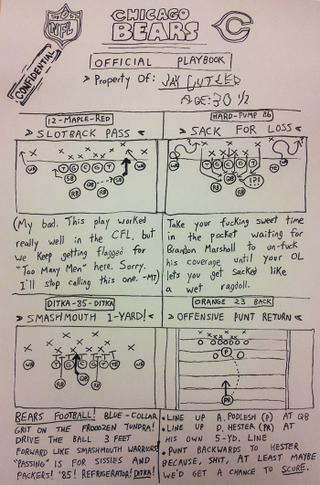 NFL
CHICAGO
BEARS
C
OFFICIAL PLAYBOOK
CONFIDENTIAL
> Property Of: JAY CUTLER
AGE: 30 1/2
12-MAPLE-RED
> SLOTBACK PASS <
HARD-PUMP 86
> SACK FOR LOSS <
(My bad. This play worked
really well in the CFL, but
we keep getting flagged for
"Too Many Men" here. Sorry.
I'll stop calling this one. -MT)
Take your fucking sweet time
in the pocket waiting for
Brandon Marshall to un-fuck
his coverage until your OL
lets you get sacked like
a wet ragdoll.
DITKA-85-DITKA
> SMASHMOUTH 1-YARD! <
ORANGE 23 BACK
> OFFENSIVE PUNT RETURN <
BEARS FOOTBALL! BLUE-COLLAR
GRIT ON THE FROOOZEN TUNDRA!
DRIVE THE BALL 3 FEET
FORWARD LIKE SMASHMOUTH WARRIORS!
"PASSING" IS FOR SISSIES AND
PACKERS! '85! REFRIGERATOR! DITKA!
•LINE UP A. PODLESH (P) AT QB
•LINE UP D. HESTER (PR) AT
HIS OWN 5-YD. LINE
•PUNT BACKWARDS TO HESTER
BECAUSE, SHIT, AT LEAST MAYBE
WE'D GET A CHANCE TO SCORE.